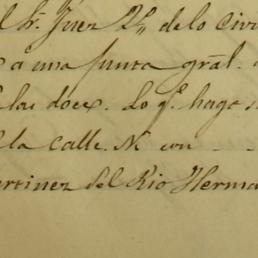 l Sr. Juez 2º, de lo Civi
a una junta gral.
las doce. Lo q.e hago
la calle. N. con
artinez del Rio Herma